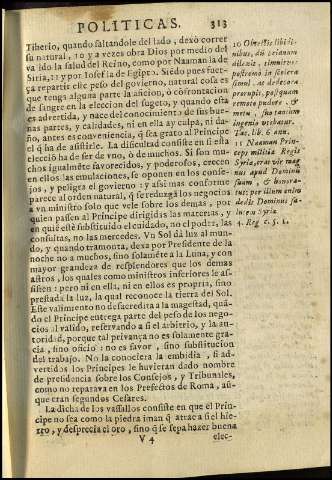 POLITICAS. 313
Tiberio, quando faltandole del lado, dexò correr
su natural, 10 y a vezes obra Dios por medio del
valido la salud del Reino, como por Naaman la de
Siria, 11 y por Iosef la de Egipto. Siēdo pues fuer-
ça repartir este peso del govierno, natural cosa es
que tenga alguna parte la afición, ó cōfrontacion
de sangre en la eleccion del sugeto, y quando esta
es advertida, y nace del conocimiento de sus bue-
nas partes, y calidades, ni en ella ay culpa, ni da-
ño, antes es conveniencia, q̃ sea grato al Principe
el q̃ ha de asistirle. La dificultad consiste en si esta
elecciō ha de ser de vno, ó de muchos. Si son mu-
chos igualmēte favorecidos, y poderosos, crecen
en ellos las emulaciones, se oponen en los conse-
jos, y peligra el govierno: y assi mas conforme
parece al orden natural, q̃ se reduzgā los negocios
a vn ministro solo que vele sobre los demas, por
quien passen al Principe dirigidas las materias, y
en quiē estè substituido el cuidado, no el poder, las
consultas, no las mercedes. Vn Sol dà luz al mun-
do, y quando tramonta, dexa por Presidente de la
noche no a muchos, sino solamēte a la Luna, y con
mayor grandeza de resplendores que los demas
astros, los quales como ministros inferiores le as-
sisten: pero ni en ella, ni en ellos es propria, sino
prestada la luz, la qual reconoce la tierra del Sol.
Este valimento no desacredita a la magestad, quā-
do el Principe entrega parte del peso de los nego-
cios al valido, reservando a si el arbitrio, y la au-
toridad, porque tal privança no es solamente gra-
cia, sino oficio: no es favor, sino substitucion
del trabajo. No la conociera la embidia, si ad-
vertidos los Principes le huvieran dado nombre
de presidencia sobre los Consejos, y Tribunales,
como no reparava en los Prefectos de Roma, aū-
que eran segundos Cesares.
La dicha de los vassallos consiste en que el Prin-
cipe no sea como la piedra iman q̃ atrae a si el hie-
rro, y desprecia el oro, sino q̃ se sepa hazer buena
V 4 elec-
10 Obtectis libidi-
nibus, dū Seianum
dilexit, timuitve:
postremò in scelera
simul, ac dedecora
prorupit, postquam
remoto pudore, &
metu, suo tantùm
ingenio utebatur.
Tac. lib. 6. ann.
11 Naaman Prin-
ceps militiæ Regis
Syriæ, erat vir mag
nus apud Dominū
suum, & honora-
tus: per illum enim
dedit Dominus sa-
lutem Syriæ.
4. Reg. c. 5. 1.